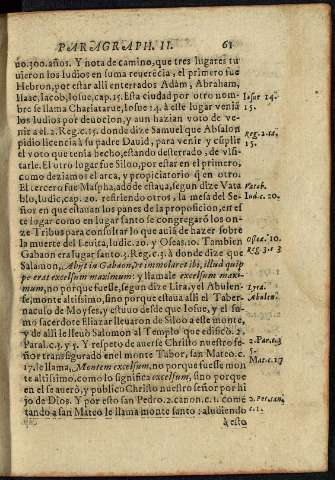 PARAGRAPH. II. 61
uo.300.años. Y nota de camino, que tres lugares tu
uieron los Iudios en suma reuerẽcia, el primero fue
Hebron, por estar alli enterrados Adam, Abraham,
Isaac, Iacob, Iosue, cap.15. Esta ciudad por otro nom
bre se llama Chariatarue, Iosue 14. à elle lugar venià
los Iudios por deuocion, y aun hazian voto de ve-
nir a el. 2. Reg. c. 15. donde dize Samuel que Absalon
pidio licencia à su padre Dauid, para venir y cũplir
el voto que tenia hecho, estando desterrado, de visi-
tarle. El otro lugar fue Silo, por estar en el primero,
como deziamos el arca, y propiciatorio q̃ en otro.
El tercero fue Maspha, adó de estaua, segun dize Vata
blo, Iudic, cap. 20. refiriendo otros, la mesa del Se-
ñor en que estauan los panes de la proposicion, en est
te lugar como en lugar santo se congregarõ los on-
ze Tribus para consultar lo que auia de hazer sobre
la muerte del Leuita, Iudic. 20. y Oseas. 10. Tambien
Gabaon era lugar santo. 3. Reg. c. 3. à donde dize que
Salamon, Abijt in Gabaon, vt immolaret ibi, illud quip
pe erat excelsum maximum: y llamale excelsum maxi-
mum, no porque fuesse, segun dize Lira, y el Abulen-
se, monte altissimo, sino porque estaua alli el Taber-
naculo de Moyses, y estuuo desde que Iosue, y el su-
mo sacerdote Eliazar lleuaron de Silo à este monte,
y de alli le lleuò Salomon al Templo que edificò. 2.
Paral. c. 3. y 5. Y respeto de auerse Christo nuestro se-
ñor transfigurado en el monte Tabor, san Mateo. c.
17. le llama, Montem excelsum, no porque fuesse mon
te altissimo, como lo significa excelsum, sino porque
en el se auerò, y publicò Christo nuestro señor por hi
jo de Dios. Y por esto san Pedro. 2. canon. c. 1. comẽ
tando a san Mateo le llama monte santo: aludiendo
à esto
Iosue 14.
15.
Reg. 2. ca.
15.
Parab.
Iud. c. 20.
Oseæ. 10.
Reg. 3. c. 3
Lyra.
Abulen.
2. Par. c. 3
5.
Mat. c. 17
2. Pet. can.
c. 1.